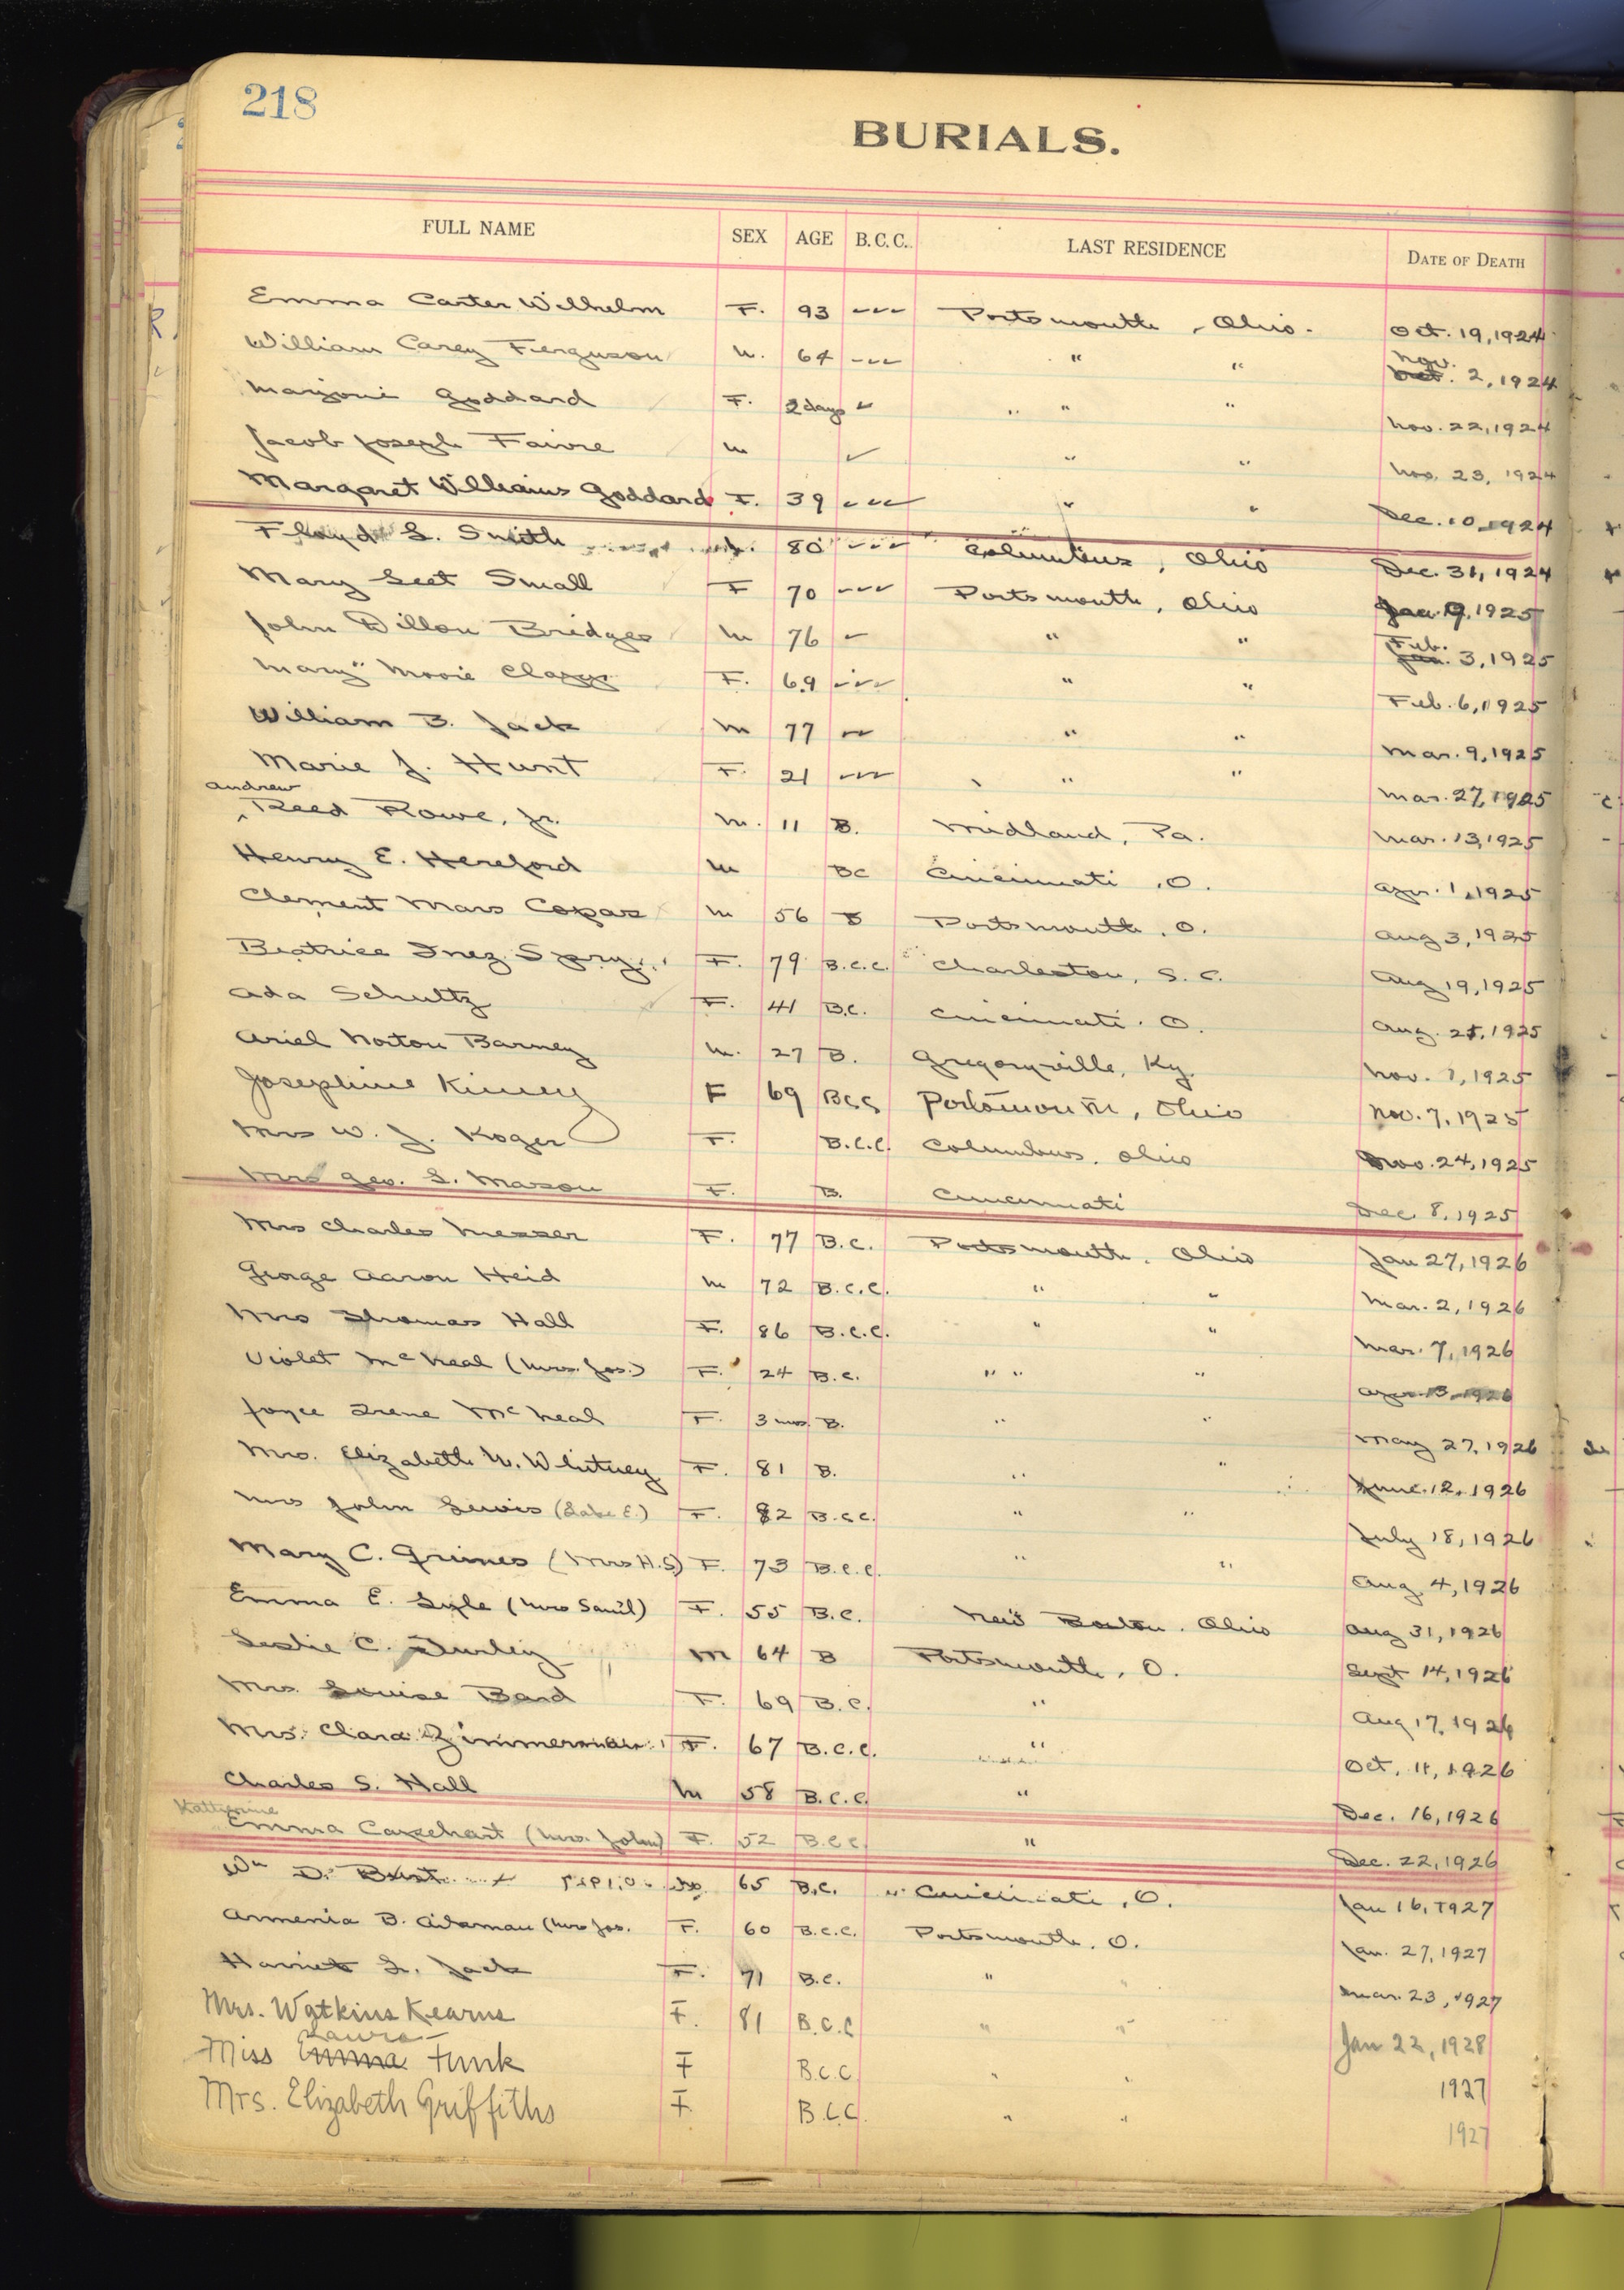 218
BURIALS.
FULL NAME SEX AGE B.C.C. LAST RESIDENCE DATE OF DEATH
Emma Carter Wilhelm F. 93 ✓✓✓ Portsmouth, Ohio. Oct. 19, 1924
William Carey Ferguson M. 64 ✓✓✓ " " Nov. Oct. 2, 1924
Marjorie Goddard F. 2 days ✓ " " Nov. 22, 1924
Jacob Joseph Faivre M ✓ " " Nov. 23, 1924
Margaret Williams Goddard F. 39 ✓✓✓ " " Dec. 10, 1924
Floyd L. Smith M. 80 ✓✓✓ Columbus, Ohio Dec. 31, 1924
Mary Leet Small F 70 ✓✓✓ Portsmouth, Ohio Jan. 9, 1925
John Dillon Bridges M 76 ✓ " " Feb. Jan. 3, 1925
Mary Moore F. 69 ✓✓✓ " " Feb. 6, 1925
William B. Jack M 77 ✓✓ " " Mar. 9, 1925
Marie J. Hunt F. 21 ✓✓✓ " " Mar. 27, 1925
Andrew
Reed Rowe, Jr. M. 11 B. Midland, Pa. Mar. 13, 1925
Henry E. Hereford M BC Cincinnati, O. Apr. 1, 1925
Clement Mars Copas M 56 B Portsmouth, O. Aug 3, 1925
Beatrice Inez Spry F. 79 B.C.C. Charleston, S. C. Aug 19, 1925
Ada Schultz F. 41 B.C. Cincinnati. O. Aug. 25, 1925
Ariel Norton Barney M. 27 B. Gregoryville, Ky. Nov. 1, 1925
Josephine Kinney F 69 BCC Portsmouth, Ohio Nov. 7, 1925
Mrs W. J. Koger F. B.C.C. Columbus, Ohio Nov. 24, 1925
Mrs Geo. L. Mason F. B. Cincinnati Dec. 8, 1925
Mrs Charles Messer F. 77 B.C. Portsmouth, Ohio Jan 27, 1926
George Aaron Heid M 72 B.C.C. " " Mar. 2, 1926
Mrs Thomas Hall F. 86 B.C.C. " " Mar. 7, 1926
Violet McNeal (Mrs. Jos.) F. 24 B.C. " " Apr. 13, 1926
Joyce Irene McNeal F. 3 mos. B. " " May 27, 1926
Mrs. Elizabeth N. Whitney F. 81 B. " " June 12, 1926
Mrs John Lewis F. 82 B.C.C. " " July 18, 1926
Mary C. Grimes (Mrs H.S) F. 73 B.C.C. " " Aug. 4, 1926
Emma E. Lyle (Mrs Saml) F. 55 B.C. New Boston, Ohio Aug 31, 1926
Leslie C. Turley M 64 B Portsmouth, O. Sept 14, 1926
Mrs. Louise Bard F. 69 B.C. " Aug 17, 1926
Mrs. Clara Zimmerman F. 67 B.C.C. " Oct. 11, 1926
Charles S. Hall M 58 B.C.C. " Dec. 16, 1926
Katherine
Emma Carehart (Mrs. John) F. 52 B.C.C. " Dec. 22, 1926
Wm D. 65 B.C. Cincinnati, O. Jan 16, 1927
Armenia B. (Mrs Jos. F. 60 B.C.C. Portsmouth, O. Jan. 27, 1927
Harriet L. Jack F. 71 B.C. " " Mar. 23, 1927
Mrs. Watkins Kearns F. 81 B.C.C " " Jan 22, 1928
Laura
Miss Emma Funk F B.C.C " " 1927
Mrs. Elizabeth Griffiths F. B.C.C. " " 1927